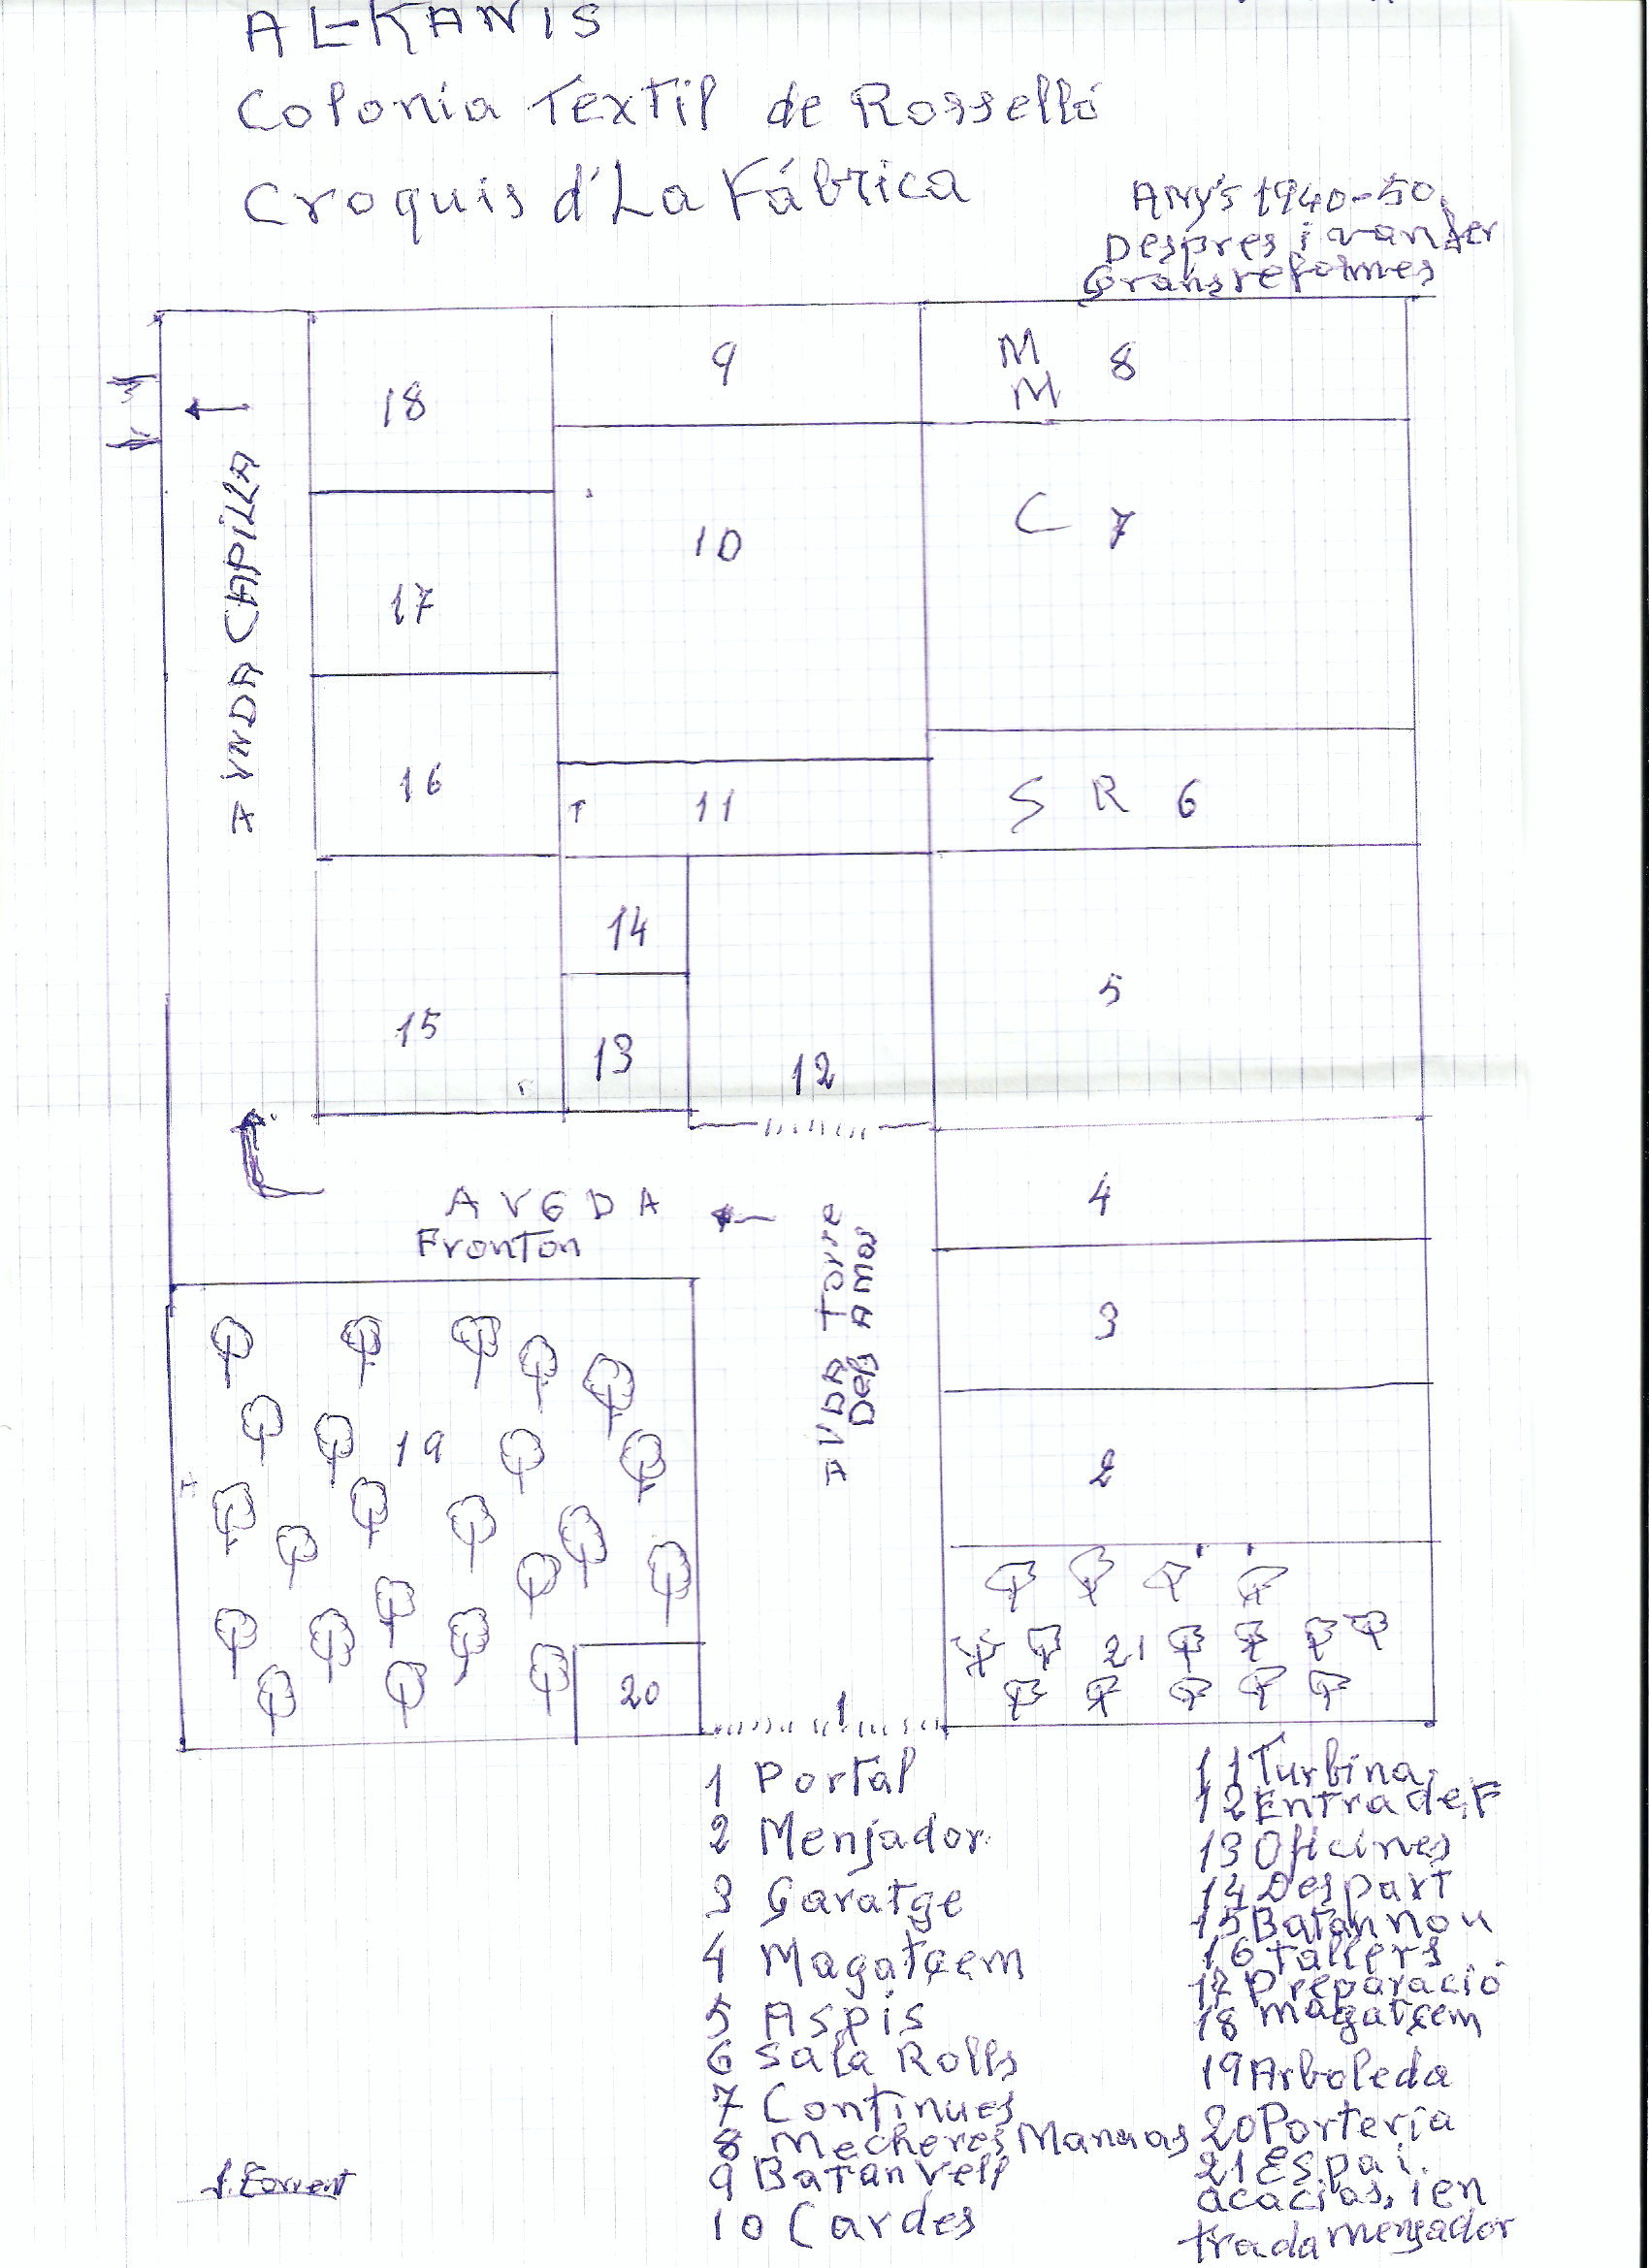 AL-KANIS
Colonia Textil de Rosselló
Croquis d'La Fábrica
ANY'S 1940-50
Despres i van fer
Grans reformes
18
9
M M 8
17
10
C 7
16
11
S R 6
AVNDA CAPILLA
14
5
15
13
12
4
AVGDA
Fronton
AVDA Torre
Dels Amos
3
19
2
20
1
21
1 Portal
2 Menjador
3 Garatge
4 Magatçem
5 Aspis
6 Sala Rolls
7 Continues
8 Mecheres Manuas
9 Batan Vell
10 Cardes
11 Turbina
12 Entrade,F
13 Oficines
14 Despart
15 Batan nou
16 tallers
17 Preparació
18 magatçem
19 Arboleda
20 Porteria
21 Espai
acacias, i en
trada menjador
J. Torrent